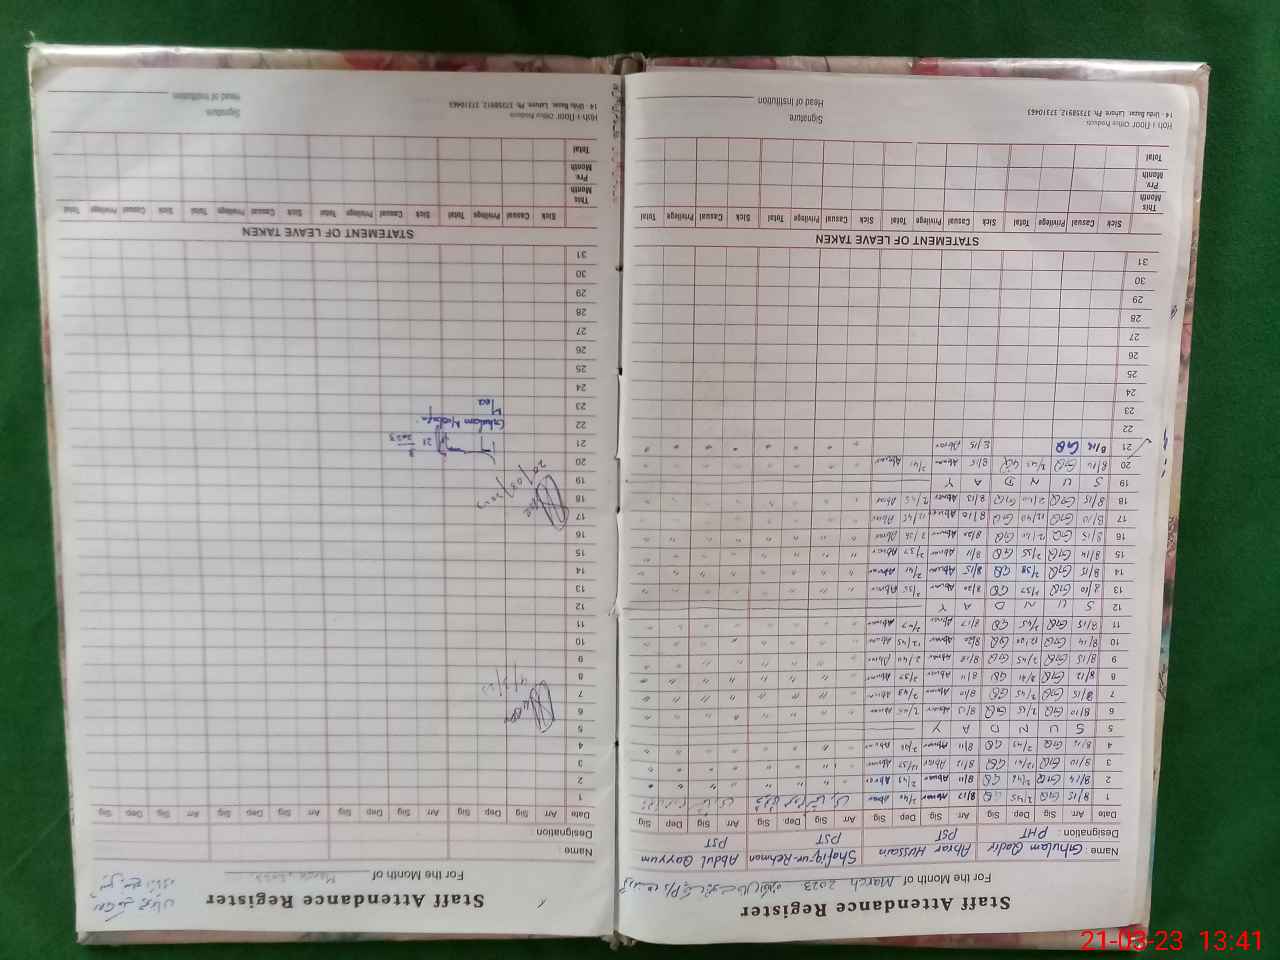 Staff Attendance Register
For the Month of March 2023
Name : Ghulam Qadir Abrar Hussain Shafiq-ur-Rehman Abdul Qayyum
Designation : PHT PST PST PST
Date Arr Sig Dep Sig Arr Sig Dep Sig Arr Sig Dep Sig Arr Sig Dep Sig
1 8/15 GQ 2/45 GQ 8/17 Abrar 2/40 Abrar
2 8/14 GQ 2/46 GQ 8/11 Abrar 2/43 Abrar
3 8/10 GQ 12/41 GQ 8/12 Abrar 12/37 Abrar
4 8/12 GQ 2/43 GQ 8/11 Abrar 2/36 Abrar
5 S U N D A Y
6 8/10 GQ 2/45 GQ 8/13 Abrar 2/45 Abrar
7 8/15 GQ 2/45 GQ 8/10 Abrar 2/43 Abrar
8 8/12 GQ 2/41 GQ 8/11 Abrar 2/37 Abrar
9 8/15 GQ 2/45 GQ 8/18 Abrar 2/40 Abrar
10 8/14 GQ GQ 8/20 Abrar 12/45 Abrar
11 8/15 GQ 2/45 GQ 8/17 Abrar 2/47 Abrar
12 S U N D A Y
13 8/10 GQ 2/37 GQ 8/20 Abrar 2/35 Abrar
14 8/15 GQ 2/38 GQ 8/15 Abrar 2/41 Abrar
15 8/14 GQ 2/35 GQ 8/11 Abrar 2/37 Abrar
16 8/15 GQ 12/40 GQ 8/20 Abrar 2/36 Abrar
17 8/10 GQ 12/40 GQ 8/10 Abrar 12/45 Abrar
18 8/15 GQ 2/40 GQ 8/13 Abrar 2/45 Abrar
19 S U N D A Y
20 8/14 GQ 2/45 GQ 8/15 Abrar 2/41 Abrar
21 8/14 GQ 8/15 Abrar
22
23
24
25
26
27
28
29
30
31
STATEMENT OF LEAVE TAKEN
Sick Casual Privilege Total Sick Casual Privilege Total Sick Casual Privilege Total Sick Casual Privilege Total
This Month
Prv. Month
Total
Signature
Head of Institution
Office Products
14 - Urdu Bazar, Lahore. Ph: 37358912, 37310463
Staff Attendance Register
For the Month of March, 2023
Name :
Designation :
Date Arr Sig Dep Sig Arr Sig Dep Sig Arr Sig Dep Sig Arr Sig Dep Sig
1
2
3
4
5
6
7
8
9
10
11
12
13
14
15
16
17
18
19
20
20/03/2023
21
21 3 2023
22
Ghulam
23
24
25
26
27
28
29
30
31
STATEMENT OF LEAVE TAKEN
Sick Casual Privilege Total Sick Casual Privilege Total Sick Casual Privilege Total Sick Casual Privilege Total
This Month
Prv. Month
Total
Signature
Head of Institution
Office Products
14 - Urdu Bazar, Lahore. Ph: 37358912, 37310463
21-03-23 13:41